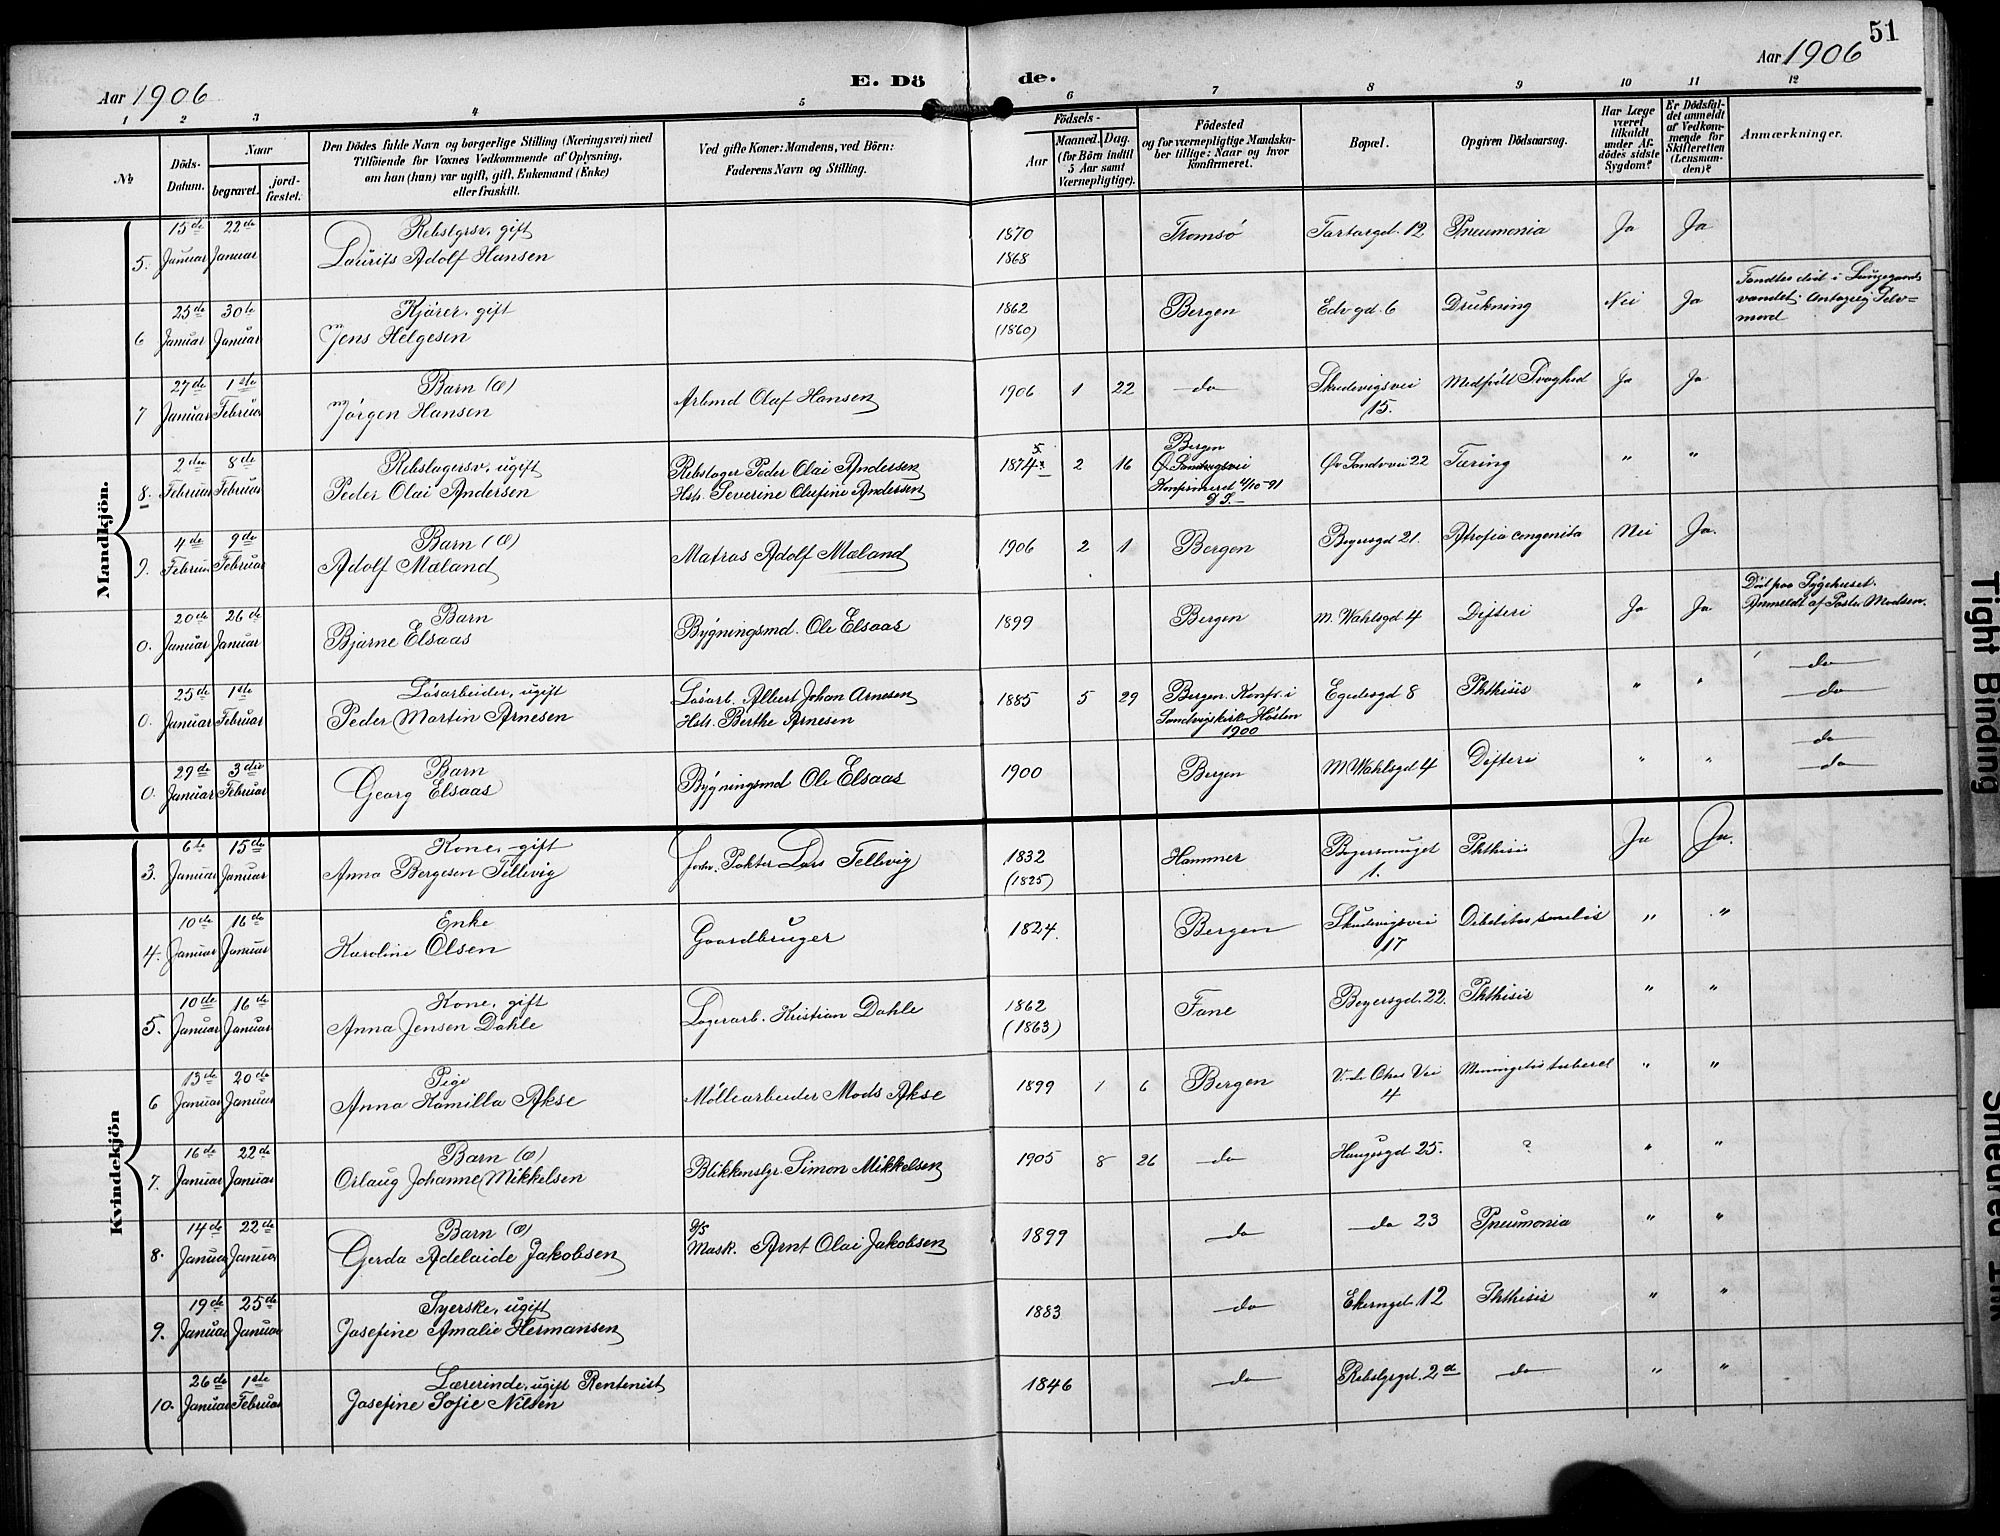 51
Aar 1906
E. Dö de.
Aar 1906
1 2 3 4 5 6 7 8 9 10 11 12
№
Döds-Datum.
Naar
begravet.
jord-fæstet.
Den Dödes fulde Navn og borgerlige Stilling (Næringsvei) med
Tilföiende for Voxnes Vedkommende af Oplysning,
om han (hun) var ugift, gift, Enkemand (Enke)
eller fraskilt.
Ved gifte Koner: Mandens, ved Börn:
Faderens Navn og Stilling.
Födsels-
Aar
Maaned. Dag.
(for Börn indtil
5 Aar samt
Værnepligtige).
Födested
og for værnepligtige Mandska-
ber tillige: Naar og hvor
konfirmeret.
Bopæl.
Opgiven Dödsaarsag.
Har Læge
været
tilkaldt
under Af-
dödes sidste
Sygdom?
Er Dödsfal-
det anmeldt
af Vedkom-
mende for
Skifteretten
(Lensman-
den)?
Anmærkninger.
Mandkjön.
15de 22de Rebslgrsv, gift 1870 Tromsö Tartargd. 12 Pneumonia Ja Ja
5. Januar Januar Laurits Adolf Hansen 1868
25de 30te Kjörer, gift 1862 Bergen Edv gd. 6 Drukning Nei Ja Fandtes död i Lungegaards
vandet; Antagelig Selv=
mord
6 Januar Januar Jens Helgesen (1860)
27de 1ste Barn (æ) Arbmd Olaf Hansen 1906 1 22 do Skudevigsvei Medfödt Svaghed Ja Ja
7 Januar Februar Jörgen Hansen 15.
2den 8de Rebslagersv, ugift Rebslager Peder Olai Andersen 1874 2 16 Bergen Öv Sandvvei 22 Tæring " "
8. Februar Februar Peder Olai Andersen Hst. Severine Olufine Andersen Ö. Sandvigsvei
Konfirmeret 4/10-91
4de 9de Barn (æ) Matros Adolf Mæland 1906 2 1 Bergen Beyersgd 21. Atrofia congenita Nei Ja.
9. Februar Februar Adolf Mæland
20de 26de Barn Bygningsmd. Ole Elsaas 1899 Bergen M. Wahlsgd 4 Difteri Ja Ja Död paa Sygehuset.
Anmeldt af Pastor Madsen.
0. Januar Januar Bjarne Elsaas
25de 1ste Lösarbeider, ugift Lösarb. Albert Johan Arnesen 1885 5 29 Bergen. Konfr. i Egedesgd 8 Phthisis " " do
0. Januar Februar Peder Martin Arnesen Hst. Berthe Arnesen Sandvigskirke Hösten do
1900
29de 3die Barn Bygningsmd Ole Elsaas 1900 Bergen M Wahlsgd 4 Difteri " " do
0. Januar Februar Georg Elsaas do
Kvindekjön
6te 15de Kone, gift Pakter Lars Tellevig 1832 Hammer Phthisis Ja Ja.
3. Januar Januar Anna Bergesen Tellevig (1825) 1.
10de 16de Enke Gaardbruger 1824. Bergen Skudevigsvei Debilitas senilis " "
4. Januar Januar Karoline Olsen 17
10de 16de Kone, gift Lagerarb. Kristian Dahle 1862 Fane Beyersgd. 22. Phthisis " "
5. Januar Januar Anna Jensen Dahle (1863)
13de 20de Pige Möllearbeider Mads Akse 1899 1 6 Bergen Vei Meningitis tubercl " "
6 Januar Januar Anna Kamilla Akse 4
16de 22de Barn (æ) Blikkenslgr. Simon Mikkelsen 1905 8 26 do Haugesgd 25. ? " "
7. Januar Januar Orlaug Johanne Mikkelsen
14de 22de Barn (æ) Mask. Arnt Olai Jakobsen 1899 do do 23 Pneumonia " "
8. Januar Januar Gerda Adelaide Jakobsen
19de 25de Syerske, ugift 1883 do Ekerngd. 12 Phthisis " "
9. Januar Januar Josefine Amalie Hermansen
26de 1ste Lærerinde, ugift Rentenist 1846 do Rebslgrgd. 2d do " "
10. Januar Februar Josefine Sofie Nilsen
Tight Binding
Smeared Ink